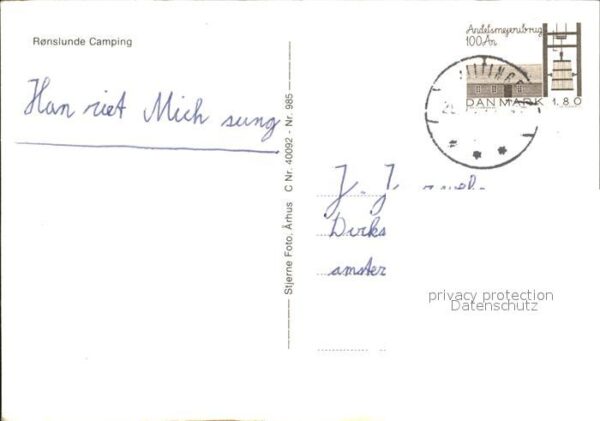 Rønslunde Camping
Andelsmejeribrug
100 År
DANMARK 1.80
Han riet Mich sung
Stjerne Foto, Århus C Nr. 40092 - Nr. 985
Dirks
amster
privacy protection
Datenschutz